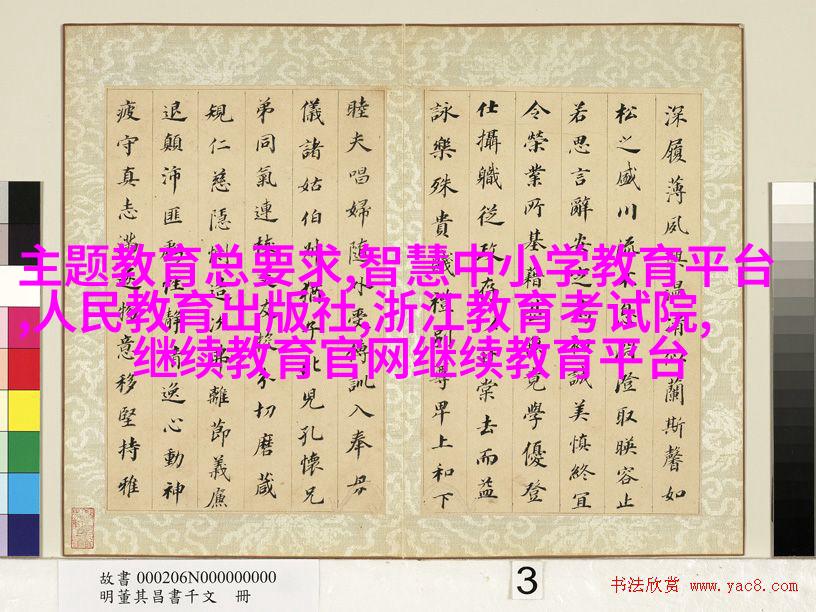 深履薄夙興温凊似蘭斯馨如
松之盛川流不息澄取暎容止
若思言辭安誠美慎終宜
令榮業所基籍甚竟學優登
仕攝職從政存以甘棠去而益
詠樂殊貴賤禮別尊卑上和下
睦夫唱婦隨外受傅訓入奉母
儀諸姑伯叔猶子比兒孔懷兄
弟同氣連枝交友投分切磨箴
規仁慈隱惻造次弗離節義廉
退顛沛匪虧性靜情逸心動神
疲守真志滿逐物意移堅持雅
主题教育总要求,智慧中小学教育平台
,人民教育出版社,浙江教育考试院,
继续教育官网继续教育平台
故書 000206N000000000
明董其昌書千文 冊
3
书法欣赏 www.yac8.com